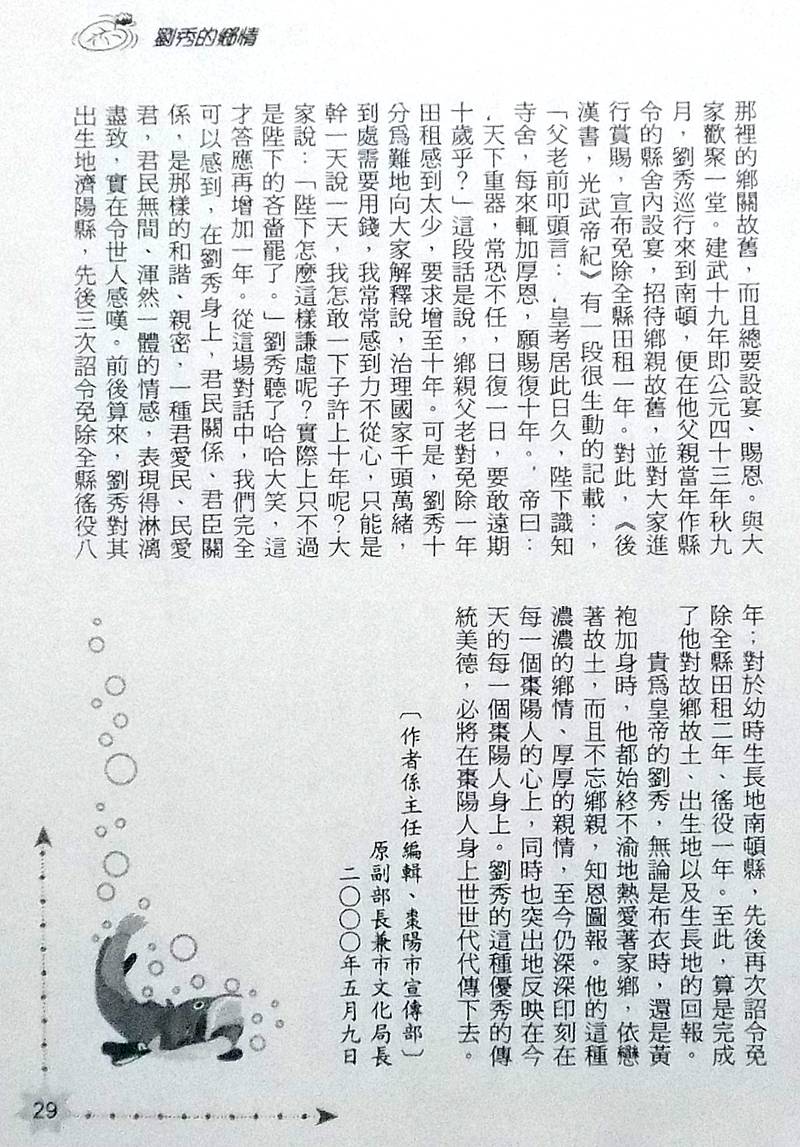 劉秀的鄉情
那裡的鄉關故舊，而且總要設宴、賜恩。與大
家歡聚一堂。建武十九年即公元四十三年秋九
月，劉秀巡行來到南頓，便在他父親當年作縣
令的縣舍內設宴，招待鄉親故舊，並對大家進
行賞賜，宣布免除全縣田租一年。對此，《後
漢書，光武帝紀》有一段很生動的記載：，
「父老前叩頭言：．皇考居此日久，陛下識知
寺舍，每來輒加厚恩，願賜復十年。，帝曰：
．天下重器，常恐不任，日復一日，要敢遠期
十歲乎？」這段話是說，鄉親父老對免除一年
田租感到太少，要求增至十年。可是，劉秀十
分為難地向大家解釋說，治理國家千頭萬緒，
到處需要用錢，我常常感到力不從心，只能是
幹一天說一天，我怎敢一下子許上十年呢？大
家說：「陛下怎麼這樣謙虛呢？實際上只不過
是陛下的吝嗇罷了。」劉秀聽了哈哈大笑，這
才答應再增加一年。從這場對話中，我們完全
可以感到，在劉秀身上，君民關係、君臣關
係，是那樣的和諧、親密，一種君愛民、民愛
君，君民無間、渾然一體的情感，表現得淋漓
盡致，實在令世人感嘆。前後算來，劉秀對其
出生地濟陽縣，先後三次詔令免除全縣徭役八
年；對於幼時生長地南頓縣，先後再次詔令免
除全縣田租二年、徭役一年。至此，算是完成
了他對故鄉故土、出生地以及生長地的回報。
貴為皇帝的劉秀，無論是布衣時，還是黃
袍加身時，他都始終不渝地熱愛著家鄉，依戀
著故土，而且不忘鄉親，知恩圖報。他的這種
濃濃的鄉情、厚厚的親情，至今仍深深印刻在
每一個棗陽人的心上，同時也突出地反映在今
天的每一個棗陽人身上。劉秀的這種優秀的傳
統美德，必將在棗陽人身上世世代代傳下去。
〔作者係主任編輯、棗陽市宣傳部〕
原副部長兼市文化局長
二○○○年五月九日
29